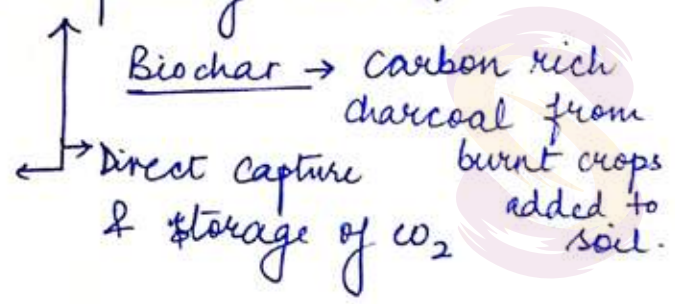 Biochar → Carbon rich
charcoal from
burnt crops
added to
soil.
→ Direct capture
& storage of CO2